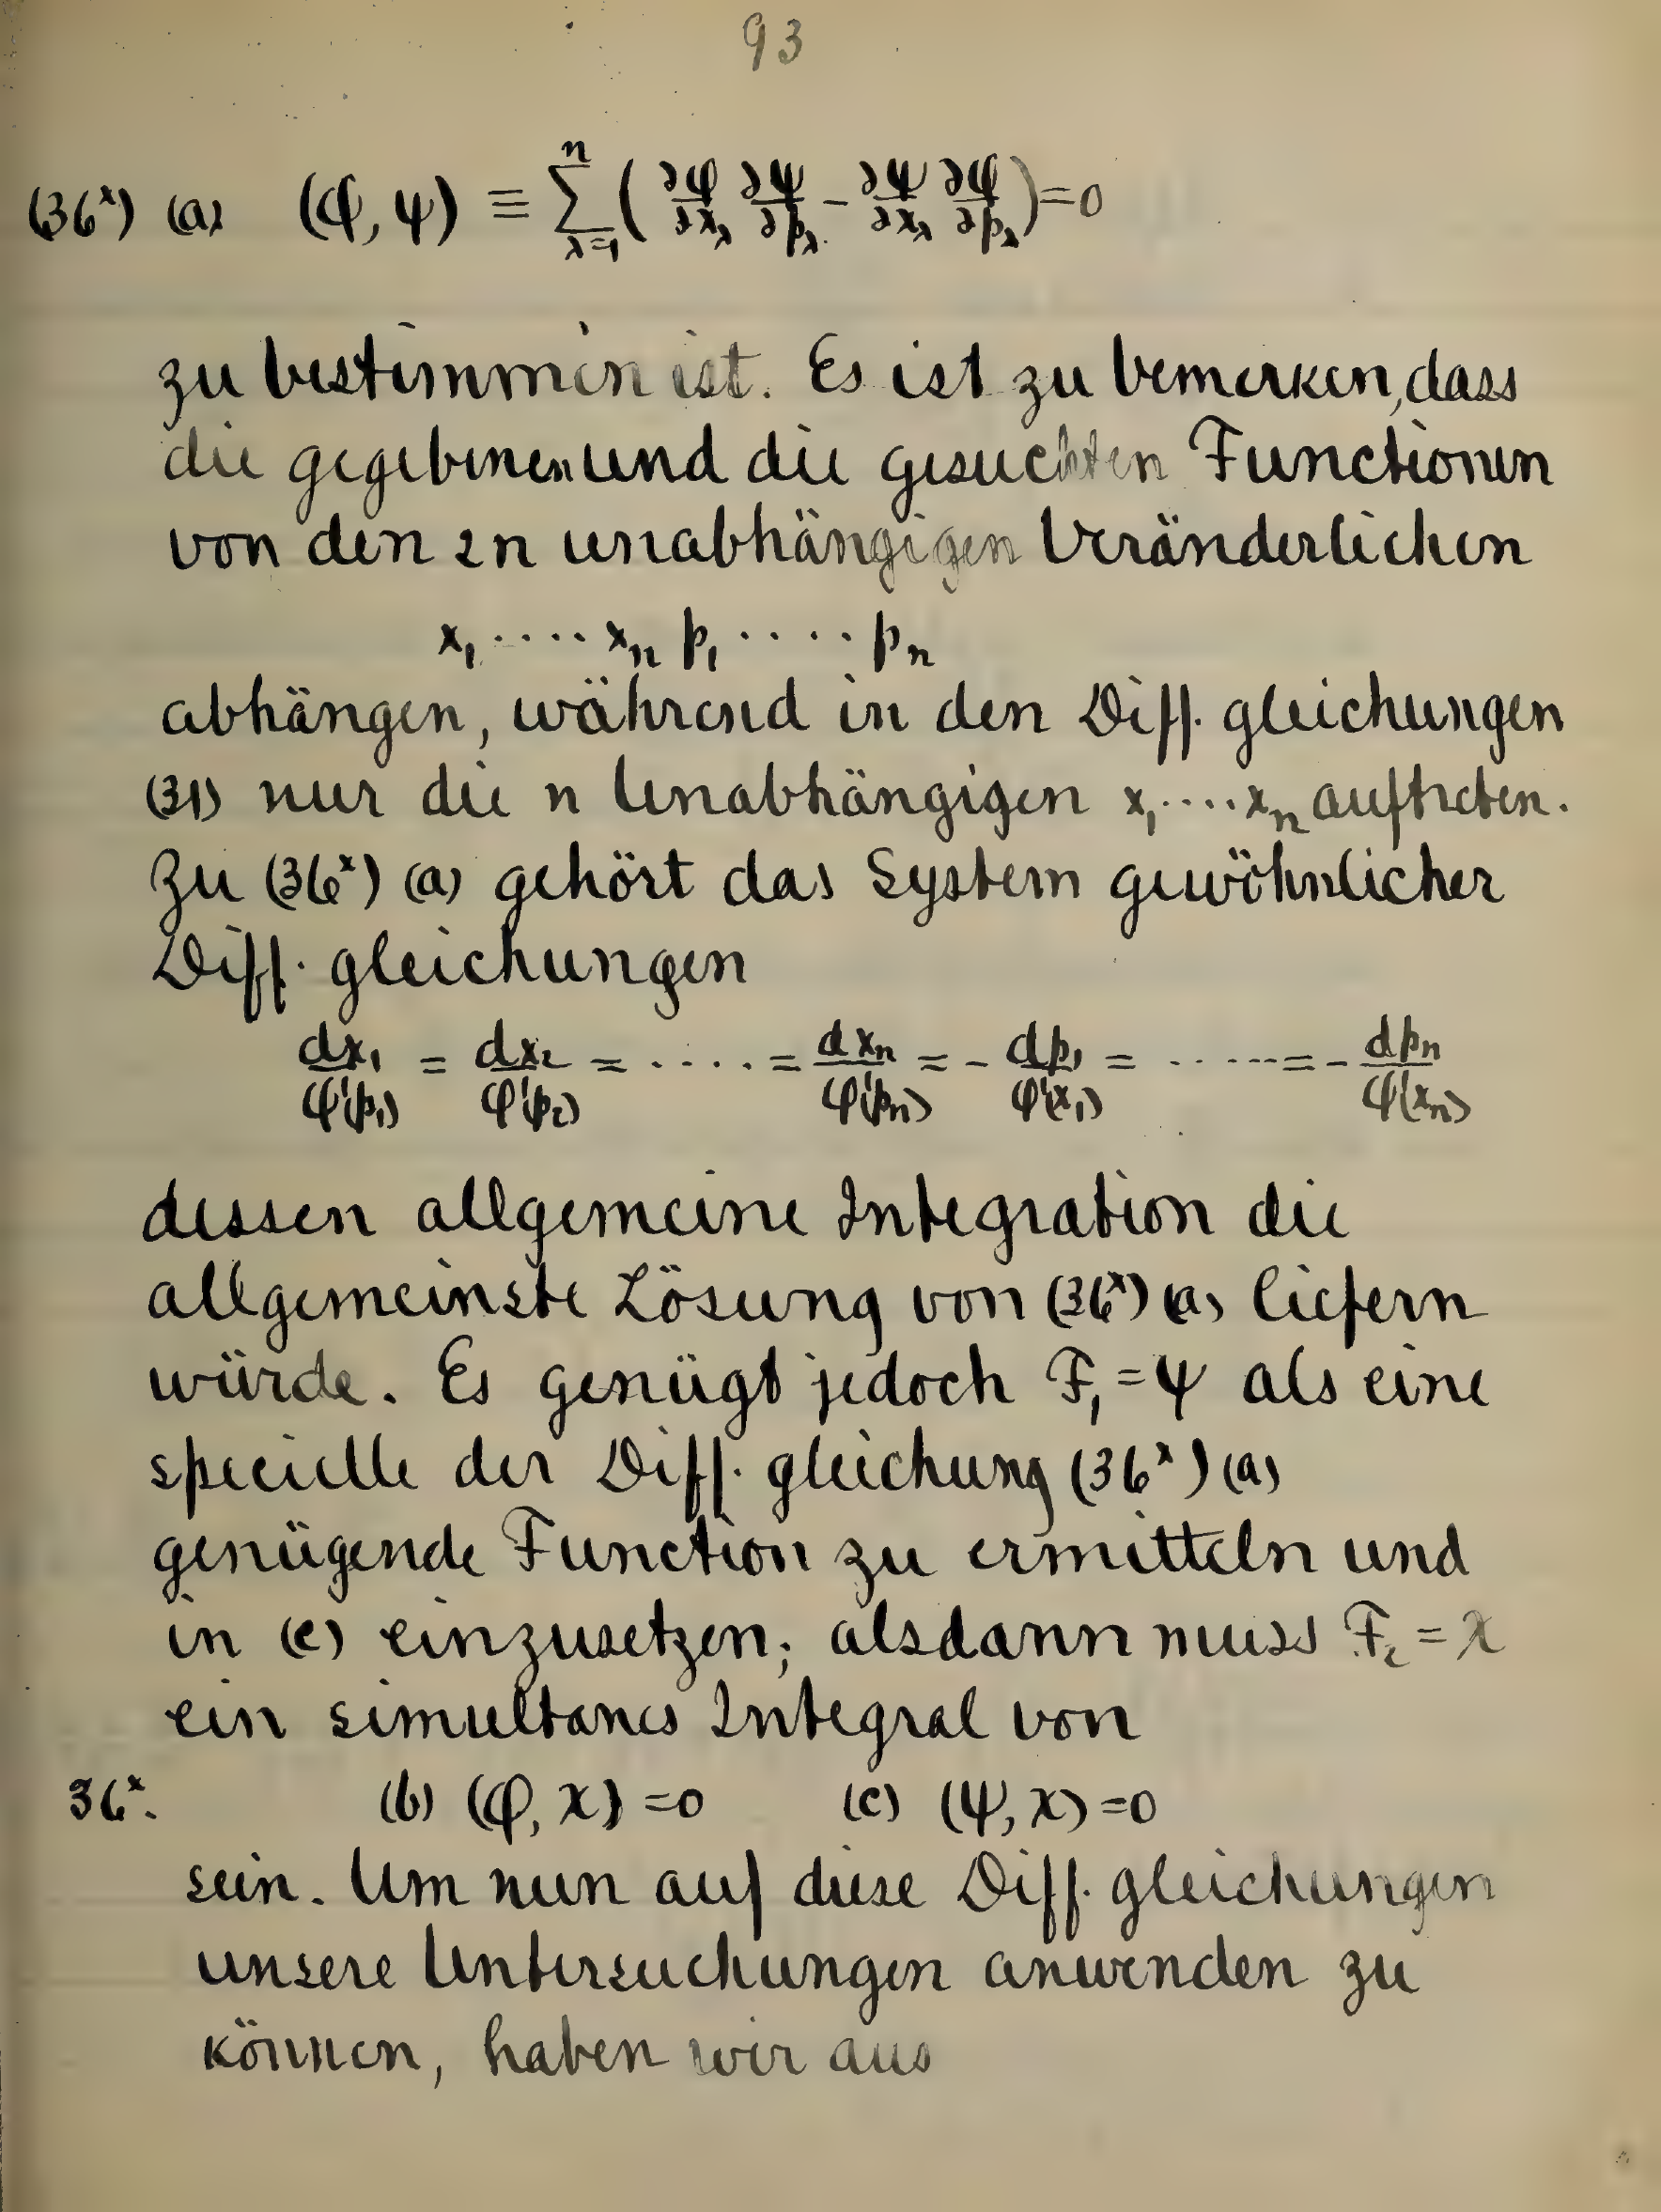 93
(36ˣ) (a) (φ, ψ) ≡ ∑_{λ=1}^{n} ( ∂φ/∂x_λ ∂ψ/∂p_λ - ∂ψ/∂x_λ ∂φ/∂p_λ ) = 0
zu bestimmen ist. Es ist zu bemerken, dass
die gegebenen und die gesuchten Functionen
von den 2n unabhängigen Veränderlichen
x₁ ····· xₙ p₁ ····· pₙ
abhängen, während in den Diff. gleichungen
(31) nur die n Unabhängigen x₁ ···· xₙ auftreten.
Zu (36ˣ) (a) gehört das System gewöhnlicher
Diff. gleichungen
dx₁/φ'(p₁) = dx₂/φ'(p₂) = ····· = dxₙ/φ'(pₙ) = - dp₁/φ'(x₁) = ······ = - dpₙ/φ'(xₙ)
dessen allgemeine Integration die
allgemeinste Lösung von (36ˣ) (a) liefern
würde. Es genügt jedoch F₁ = ψ als eine
specielle der Diff. gleichung (36ˣ) (a)
genügende Function zu ermitteln und
in (c) einzusetzen; alsdann muss F₂ = χ
ein simultanes Integral von
36ˣ. (b) (φ, χ) = 0 (c) (ψ, χ) = 0
sein. Um nun auf diese Diff. gleichungen
unsere Untersuchungen anwenden zu
können, haben wir aus